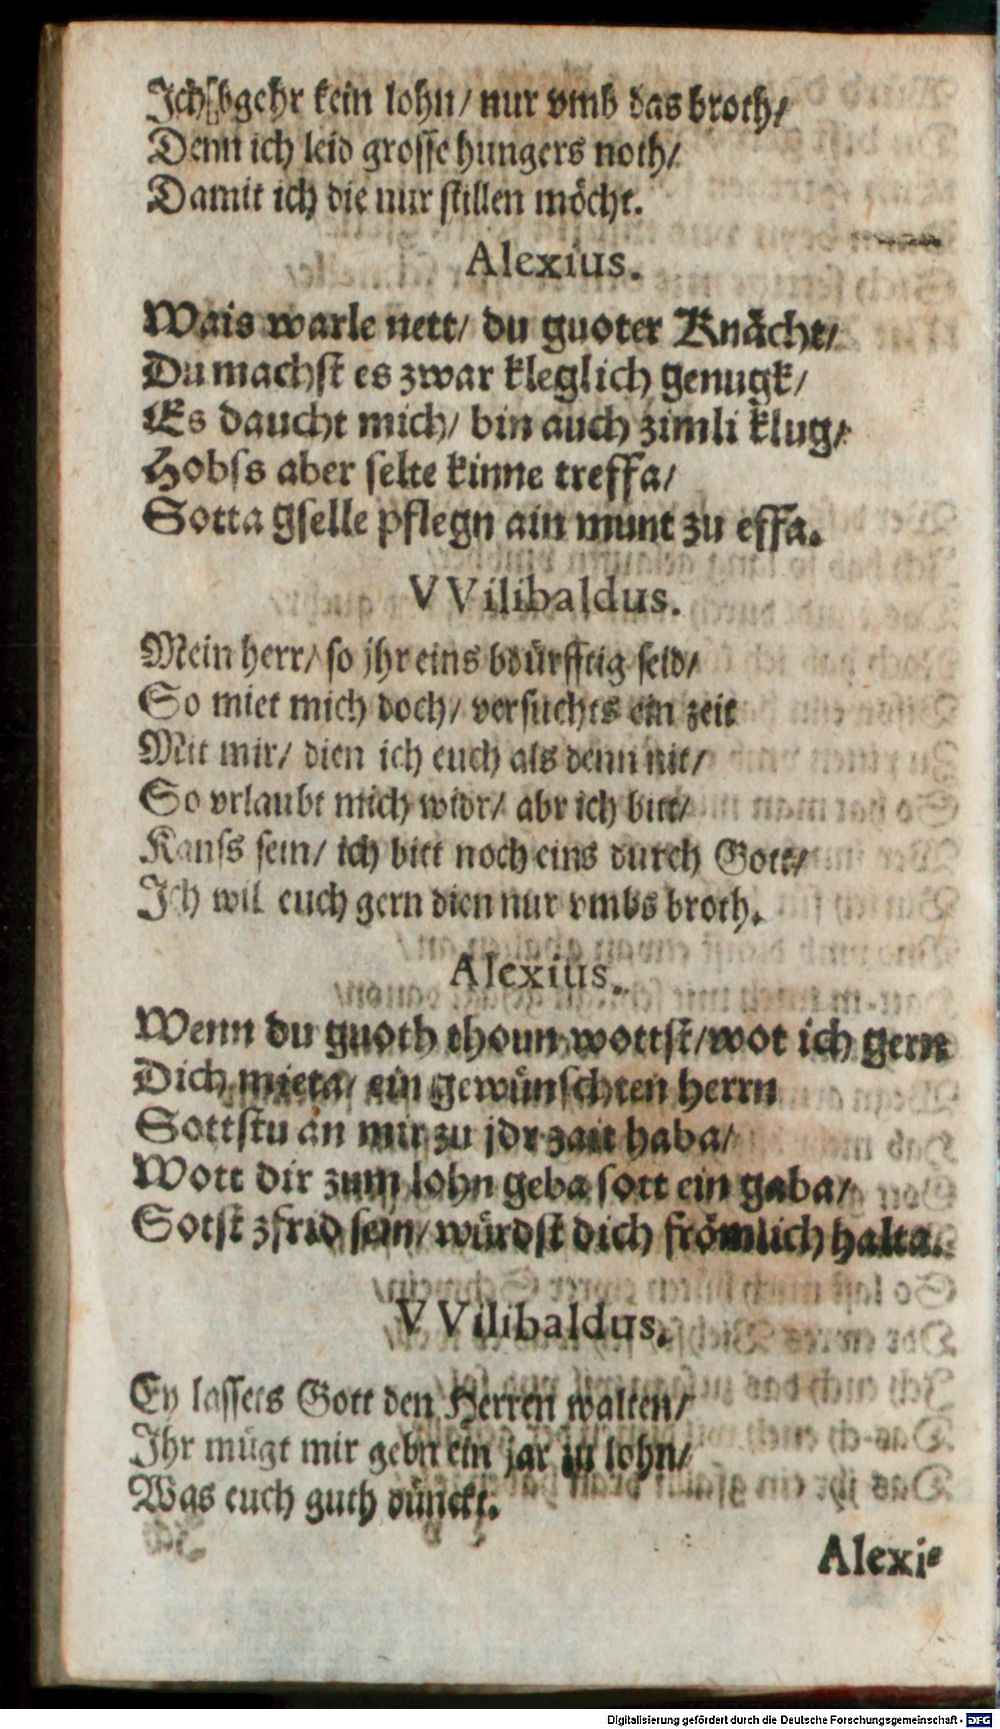 Ich bgehr kein lohn/ nur vmb das broth/
Denn ich leid grosse hungers noth/
Damit ich die nur stillen möcht.
Alexius.
Wais warle nett/ du guoter Knächt/
Du machst es zwar kleglich genugk/
Es daucht mich/ bin auch zimli klug/
Hobss aber selte kinne treffa/
Sotta gselle pflegn ain munt zu effa.
VVilibaldus.
Mein herr/ so jhr eins bdürfftig seid/
So miet mich doch/ versuchts ein zeit
Mit mir/ dien ich euch als denn nit/
So vrlaubt mich widr/ abr ich bitt/
Kanss sein/ ich bitt noch eins durch Gott/
Ich wil euch gern dien nur vmbs broth.
Alexius.
Wenn du guoth thoun wottst/ wot ich gern
Dich mieta/ ein gewünschten herrn
Sottstu an mir zu jdr zait haba/
Wott dir zum lohn geba sott ein gaba/
Sotst zfrid sein/ würdst dich frömlich halta.
VVilibaldus.
Ey lassets Gott den Herren walten/
Ihr mügt mir gebn ein jar zu lohn/
Was euch guth dünckt.
Alexi-
Digitalisierung gefördert durch die Deutsche Forschungsgemeinschaft - DFG